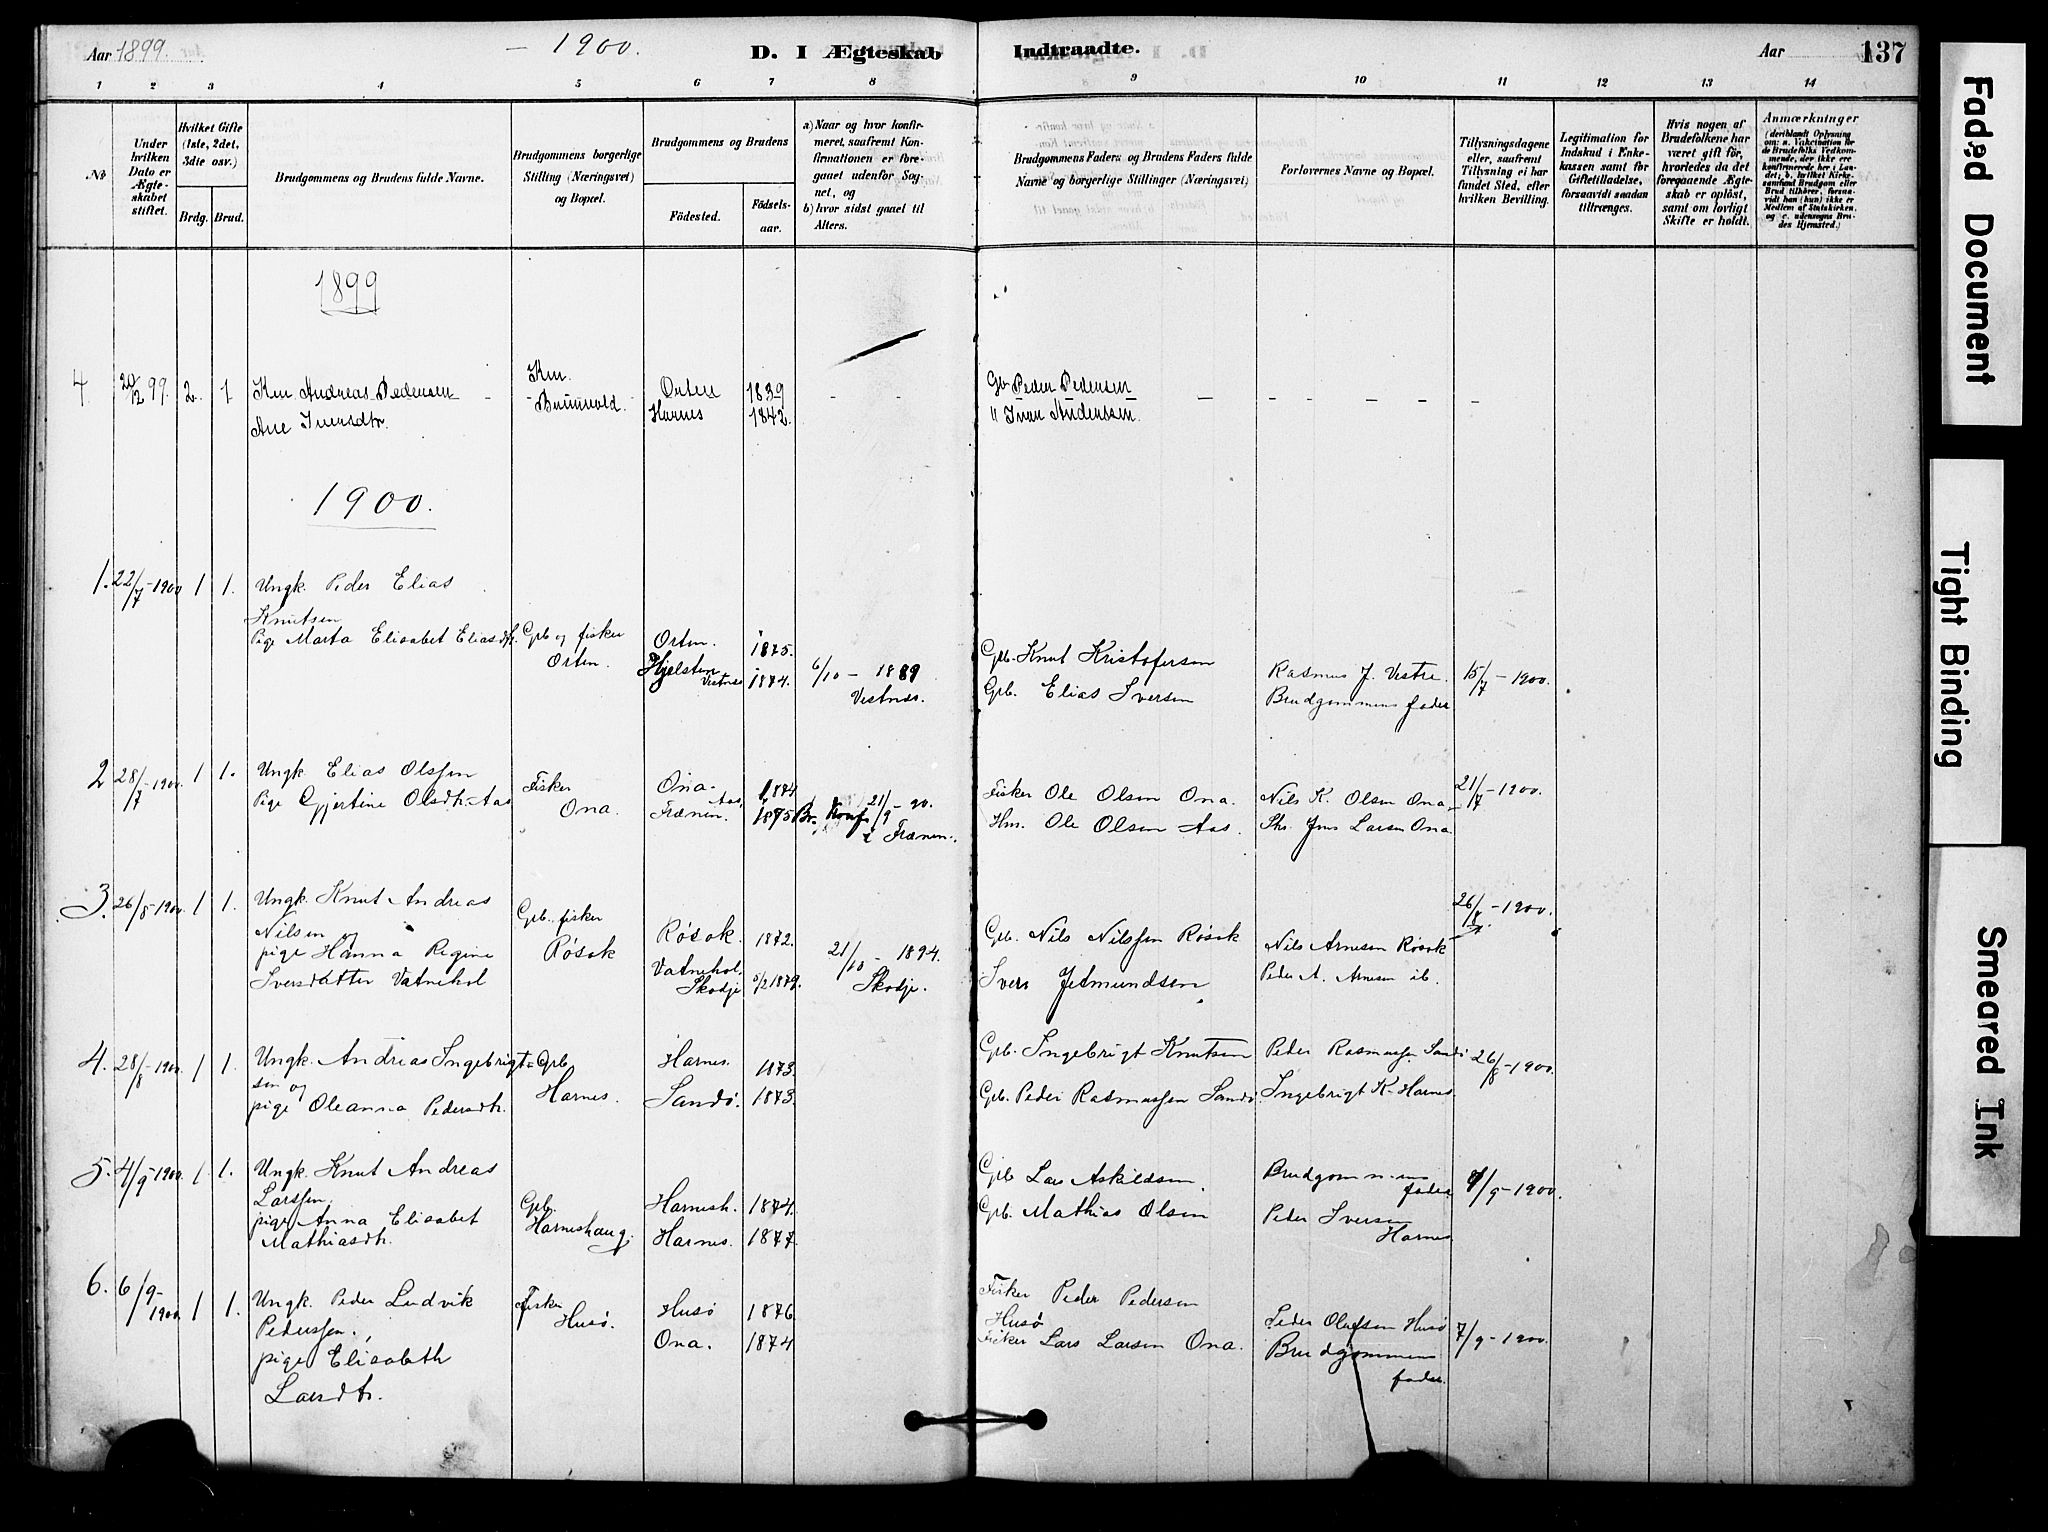 Aar 1899. – 1900. D. I Ægteskab Indtraadte. Aar 137
1 2 3 4 5 6 7 8 9 10 11 12 13 14
No
Under hvilken Dato er Ægteskabet stiftet.
Hvilket Gifte (1ste, 2det, 3die osv.)
Brdg. Brud.
Brudgommens og Brudens fulde Navne.
Brudgommens borgerlige Stilling (Næringsvei) og Bopæl.
Brudgommens og Brudens
Födested. Födsels-aar.
a) Naar og hvor konfirmeret, saafremt Konfirmationen er foregaaet udenfor Sognet, og
b) hvor sidst gaaet til Alters.
Brudgommens Faders og Brudens Faders fulde Navne og borgerlige Stillinger (Næringsvei)
Forlovernes Navne og Bopæl.
Tillysningsdagene eller, saafremt Tillysning ei har fundet Sted, efter hvilken Bevilling.
Legitimation for Indskud i Enkekassen samt for Giftetilladelse, forsaavidt saadan tiltrænges.
Hvis nogen af Brudefolkene har været gift för, hvorledes da det foregaaende Ægteskab er oplöst, samt om lovligt Skifte er holdt.
Anmærkninger
(deriblandt Oplysning om: a. Vakcination for de Brudefolks Vedkommende, der ikke ere konfirmerede her i Landet; b. hvilket Kirkesamfund Brudgom eller Brud tilhörer, forsaavidt han (hun) ikke er Medlem af Statskirken, og c. udensogns Brudes Hjemsted.)
1899
4 20/12 99. 2. 1 Km. Andreas Pedersen
Ane Iversdtr.
Km.
Orten 1839
Harnes 1842.
Gb Peder Pedersen
" Ivar Anderssen
1900.
1. 22/7-1900 1 1. Ungk. Peder Elias
Knutsen
Pige Marta Elisabet Eliasdtr.
Gb og fisker
Orten.
Orten. 1875.
Hjelsten Vestnes 1874.
6/10 - 1889
Vestnes.
Gb. Knut Kristofersen
Gb. Elias Iversen
Rasmus J. Vestre.
Brudgommens fader
15/7 - 1900.
2 28/7-1900. 1 1. Ungk. Elias Olssen
Pige Gjertine Olsdtr. Aas
Fisker
Ona.
Ona. 1874
Aas, Frænen. 1875
Br. Konf. 21/9 - 90.
i Frænen.
Fisker Ole Olsen Ona.
Hm. Ole Olsen Aas.
Nils K. Olsen Ona
Jens Larsen Ona
21/7 - 1900.
3. 26/8-1900 1 1. Ungk. Knut Andreas
Nilsen og
pige Hanna Regine
Iversdatter Vatnehol
Gb. fisker
Røsok
Røsok. 1872.
Vatnehol, Skodje 5/2 1879.
21/10 - 1894.
Skodje.
Gb. Nils Nilssen Røsok
Iver Jetmundsen
Nils Arnesen Røsok
Peder A. Arnesen ib.
26/8 - 1900.
4. 28/8-1900. 1 1. Ungk. Andreas Ingebrigt=
sen og
pige Oleanna Pedersdtr.
Gb.
Harnes.
Harnes. 1873.
Sandø. 1873.
Gb. Ingebrigt Knutsen
Gb. Peder Rasmussen Sandø.
Peder Rasmussen Sandø
Ingebrigt K. Harnes
26/8 - 1900.
5. 4/9-1900. 1 1. Ungk. Knut Andreas
Larssen.
pige Anna Elisabet
Mathiasdtr.
Gb.
Harneshaug.
Harnesh. 1874.
Harnes. 1877.
Gb Lars Askildsen.
Gb. Mathias Olsen
Brudgommens
fader
Peder Iversen
Harnes
/9-1900.
6. 6/9-1900. 1 1. Ungk. Peder Ludvik
Pederssen.
pige Elisabeth
Larsdtr.
Fisker
Husø.
Husø 1876
Ona. 1874
Fisker Peder Pedersen
Husø
Fisker Lars Larsen Ona.
Peder Olufsen Husø
Brudgommens
fader.
7/9-1900.
Faded Document
Tight Binding
Smeared Ink